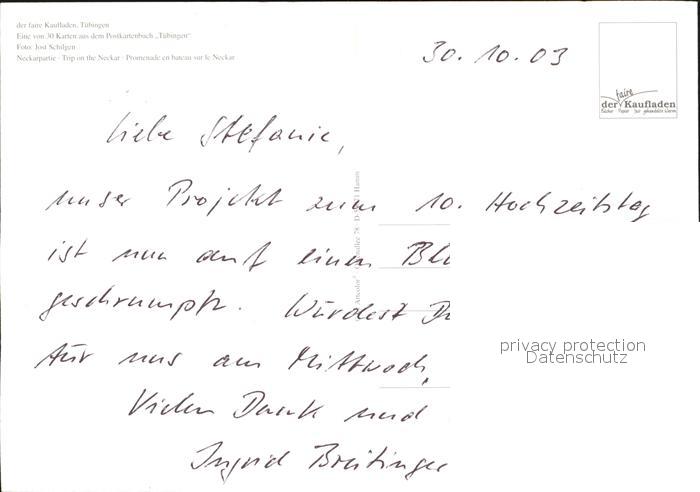 der faire Kaufladen, Tübingen
Eine von 30 Karten aus dem Postkartenbuch „Tübingen“
Foto: Jost Schilgen
Neckarpartie · Trip on the Neckar · Promenade en bateau sur le Neckar
30. 10. 03
der faire Kaufladen
Liebe Stefanie,
unser Projekt zum 10. Hochzeitstag
ist nun auf einen Blu
geschrumpft. Würdest Du
für uns am Mittwoch,
Vielen Dank und
Ingrid Breitinger
privacy protection
Datenschutz